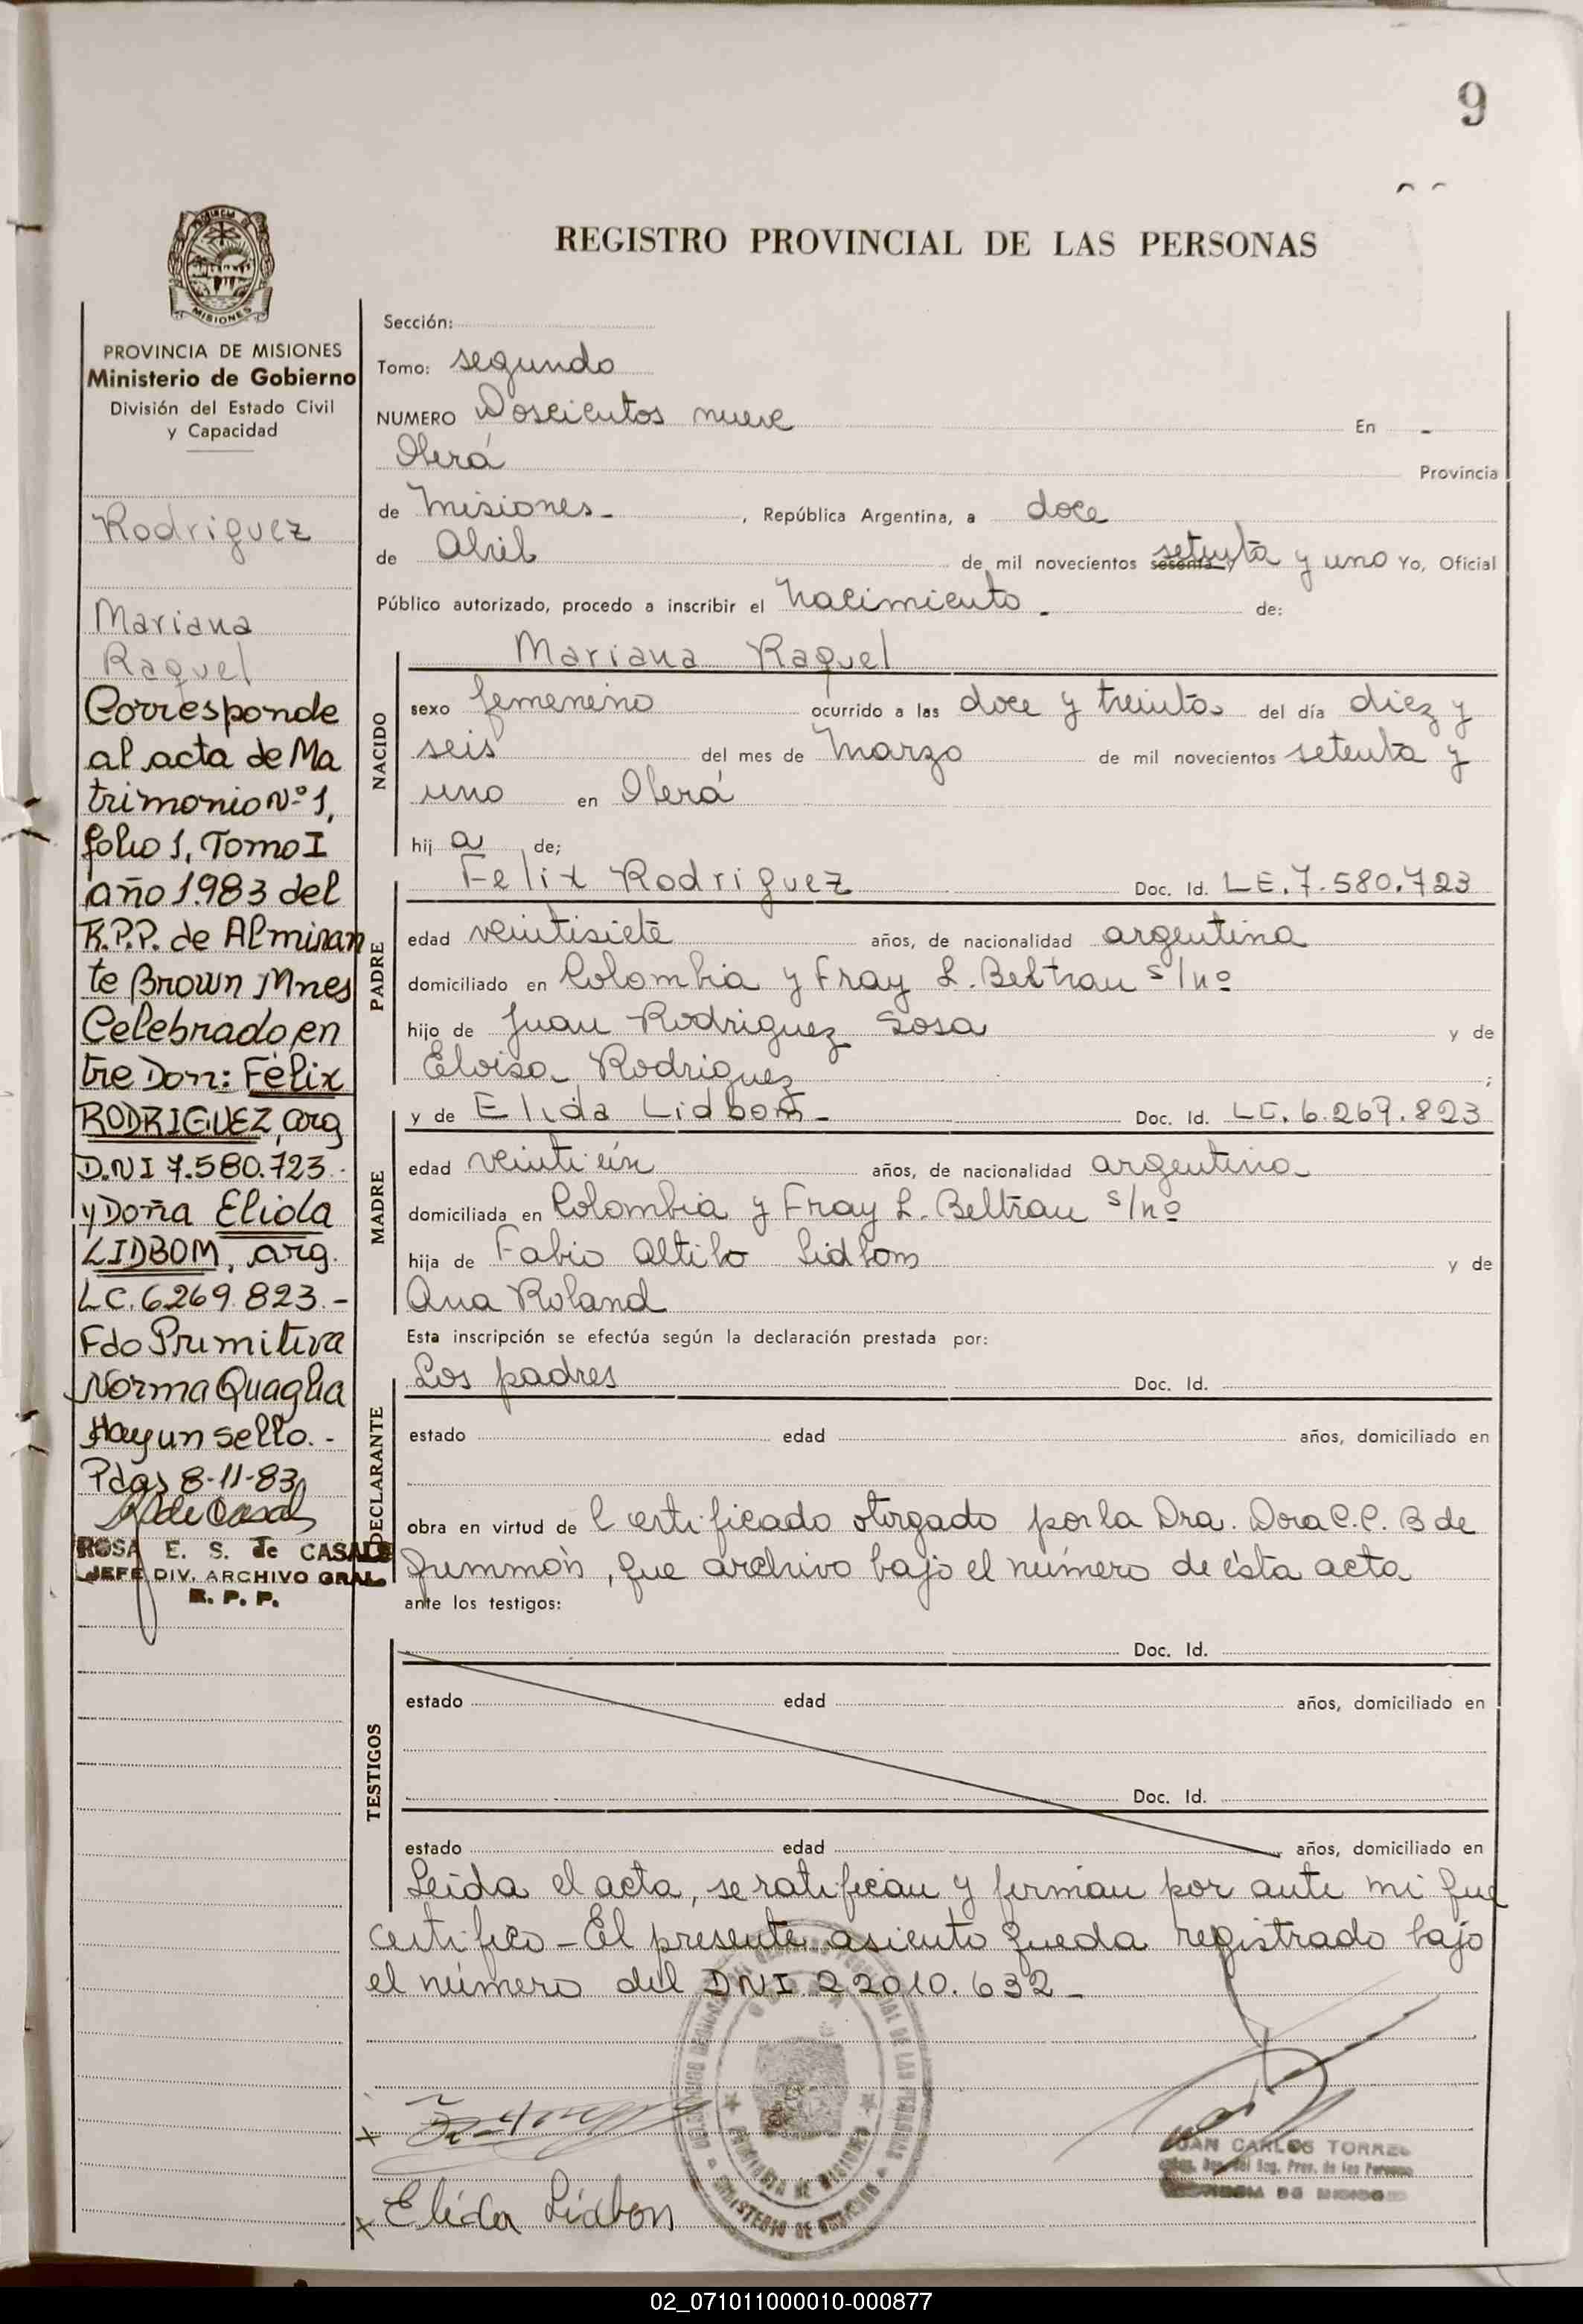 9
REGISTRO PROVINCIAL DE LAS PERSONAS
MISIONES
PROVINCIA DE MISIONES
Ministerio de Gobierno
División del Estado Civil
y Capacidad
Rodriguez
Mariana
Raquel
Corresponde
al acta de Ma
trimonio Nº 1,
folio 1, Tomo I
año 1.983 del
R.P.P. de Almiran
te Brown Mnes
Celebrado en
tre Don: Félix
RODRIGUEZ, arg
D.N I 7.580.723.-
y Doña Elida
LIDBOM, arg.
LC. 6.269.823.-
Fdo Primitiva
Norma Quaglia
Hay un sello.-
Pdas 8-11-83
ROSA E. S. de CASALS
JEFE DIV. ARCHIVO GRAL
R. P. P.
Sección:
Tomo: segundo
NUMERO Doscientos nueve En -
Oberá Provincia
de Misiones - , República Argentina, a doce
de Abril de mil novecientos sesenta y setenta y uno Yo, Oficial
Público autorizado, procedo a inscribir el Nacimiento - de:
NACIDO
Mariana Raquel
sexo femenino ocurrido a las doce y treinta del día diez y
seis del mes de Marzo de mil novecientos setenta y
uno en Oberá
hij a de;
PADRE
Felix Rodriguez Doc. Id. L.E. 7.580.723
edad veintisiete años, de nacionalidad argentina
domiciliado en Colombia y Fray L. Beltran s/nº
hijo de Juan Rodriguez Sosa y de
Eloisa Rodriguez ;
MADRE
y de Elida Lidbom - Doc. Id. LC. 6.269.823
edad veintiún años, de nacionalidad argentina
domiciliada en Colombia y Fray L. Beltrau s/nº
hija de Fabio Altibo Lidbom y de
Ana Roland
Esta inscripción se efectúa según la declaración prestada por:
DECLARANTE
Los padres Doc. Id.
estado edad años, domiciliado en
obra en virtud de Certificado otorgado por la Dra. Dora C.C. B de
que archivo bajo el número de ésta acta
ante los testigos:
TESTIGOS
Doc. Id.
estado edad años, domiciliado en
Doc. Id.
estado edad años, domiciliado en
Leída el acta, se ratifican y firman por ante mi que
certifico - El presente asiento queda registrado bajo
el número del DNI 22010.632 -
PROVINCIA DE MISIONES
MINISTERIO DE GOBIERNO
x
JUAN CARLOS TORRES
x Elida Lidbom
02_071011000010-000877